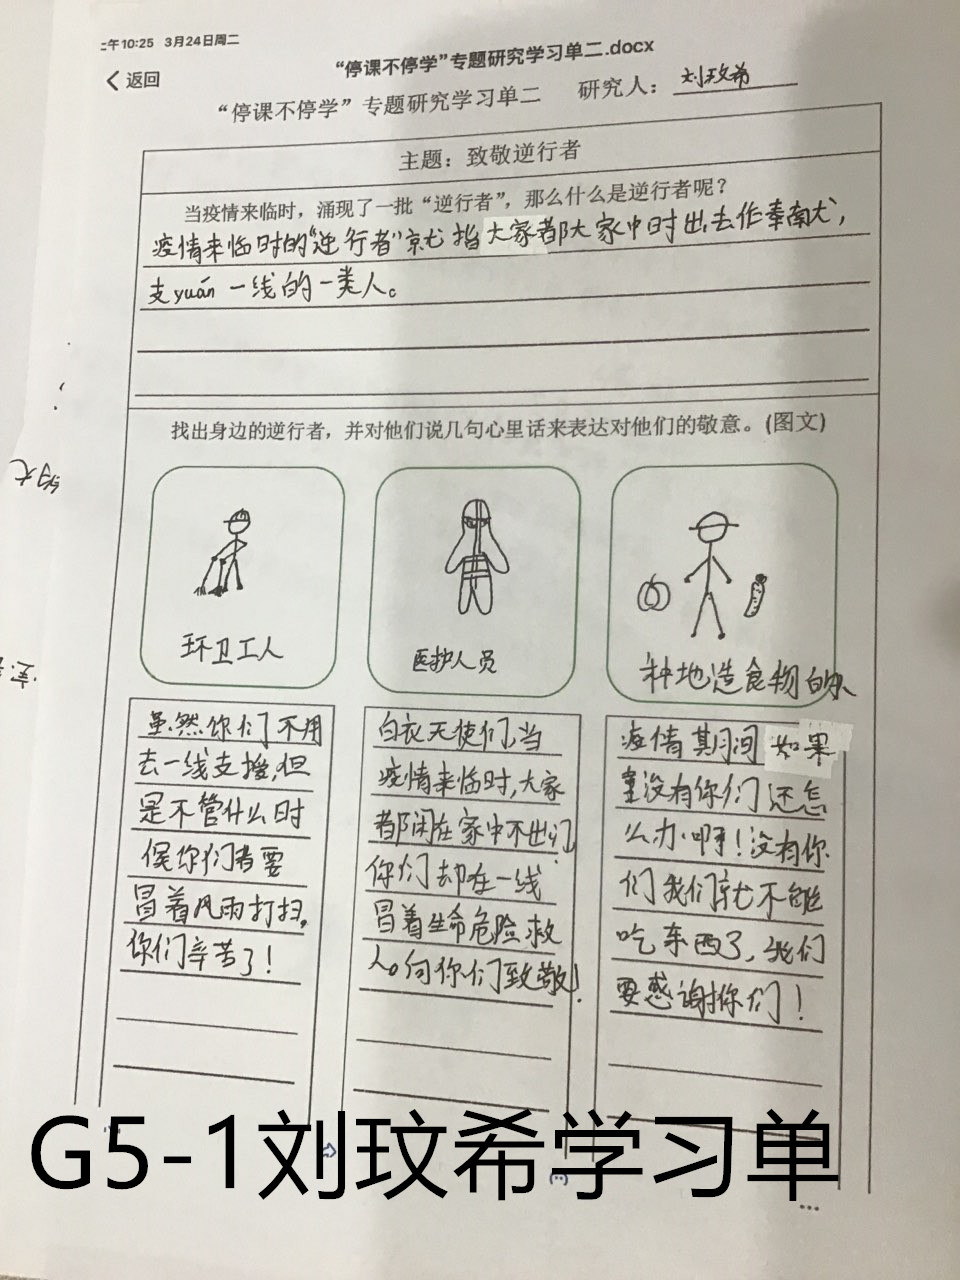 午10:25 3月24日周二
“停课不停学”专题研究学习单二.docx
返回
“停课不停学”专题研究学习单二 研究人：刘玟希
主题：致敬逆行者
当疫情来临时，涌现了一批“逆行者”，那么什么是逆行者呢？
疫情来临时的“逆行者”就指大家都大家中时出去作奉南犬，
支yuán一线的一类人。
找出身边的逆行者，并对他们说几句心里话来表达对他们的敬意。(图文)
环卫工人
医护人员
种地造食物的人
虽然你们不用
去一线支援，但
是不管什么时
候你们都要
冒着风雨打扫，
你们辛苦了！
白衣天使们，当
疫情来临时，大家
都闲在家中不出门
你们却在一线
冒着生命危险救
人。向你们致敬！
疫情期间如果
没有你们还怎
么办啊！没有你
们我们就不能
吃东西了，我们
要感谢你们！
G5-1刘玟希学习单